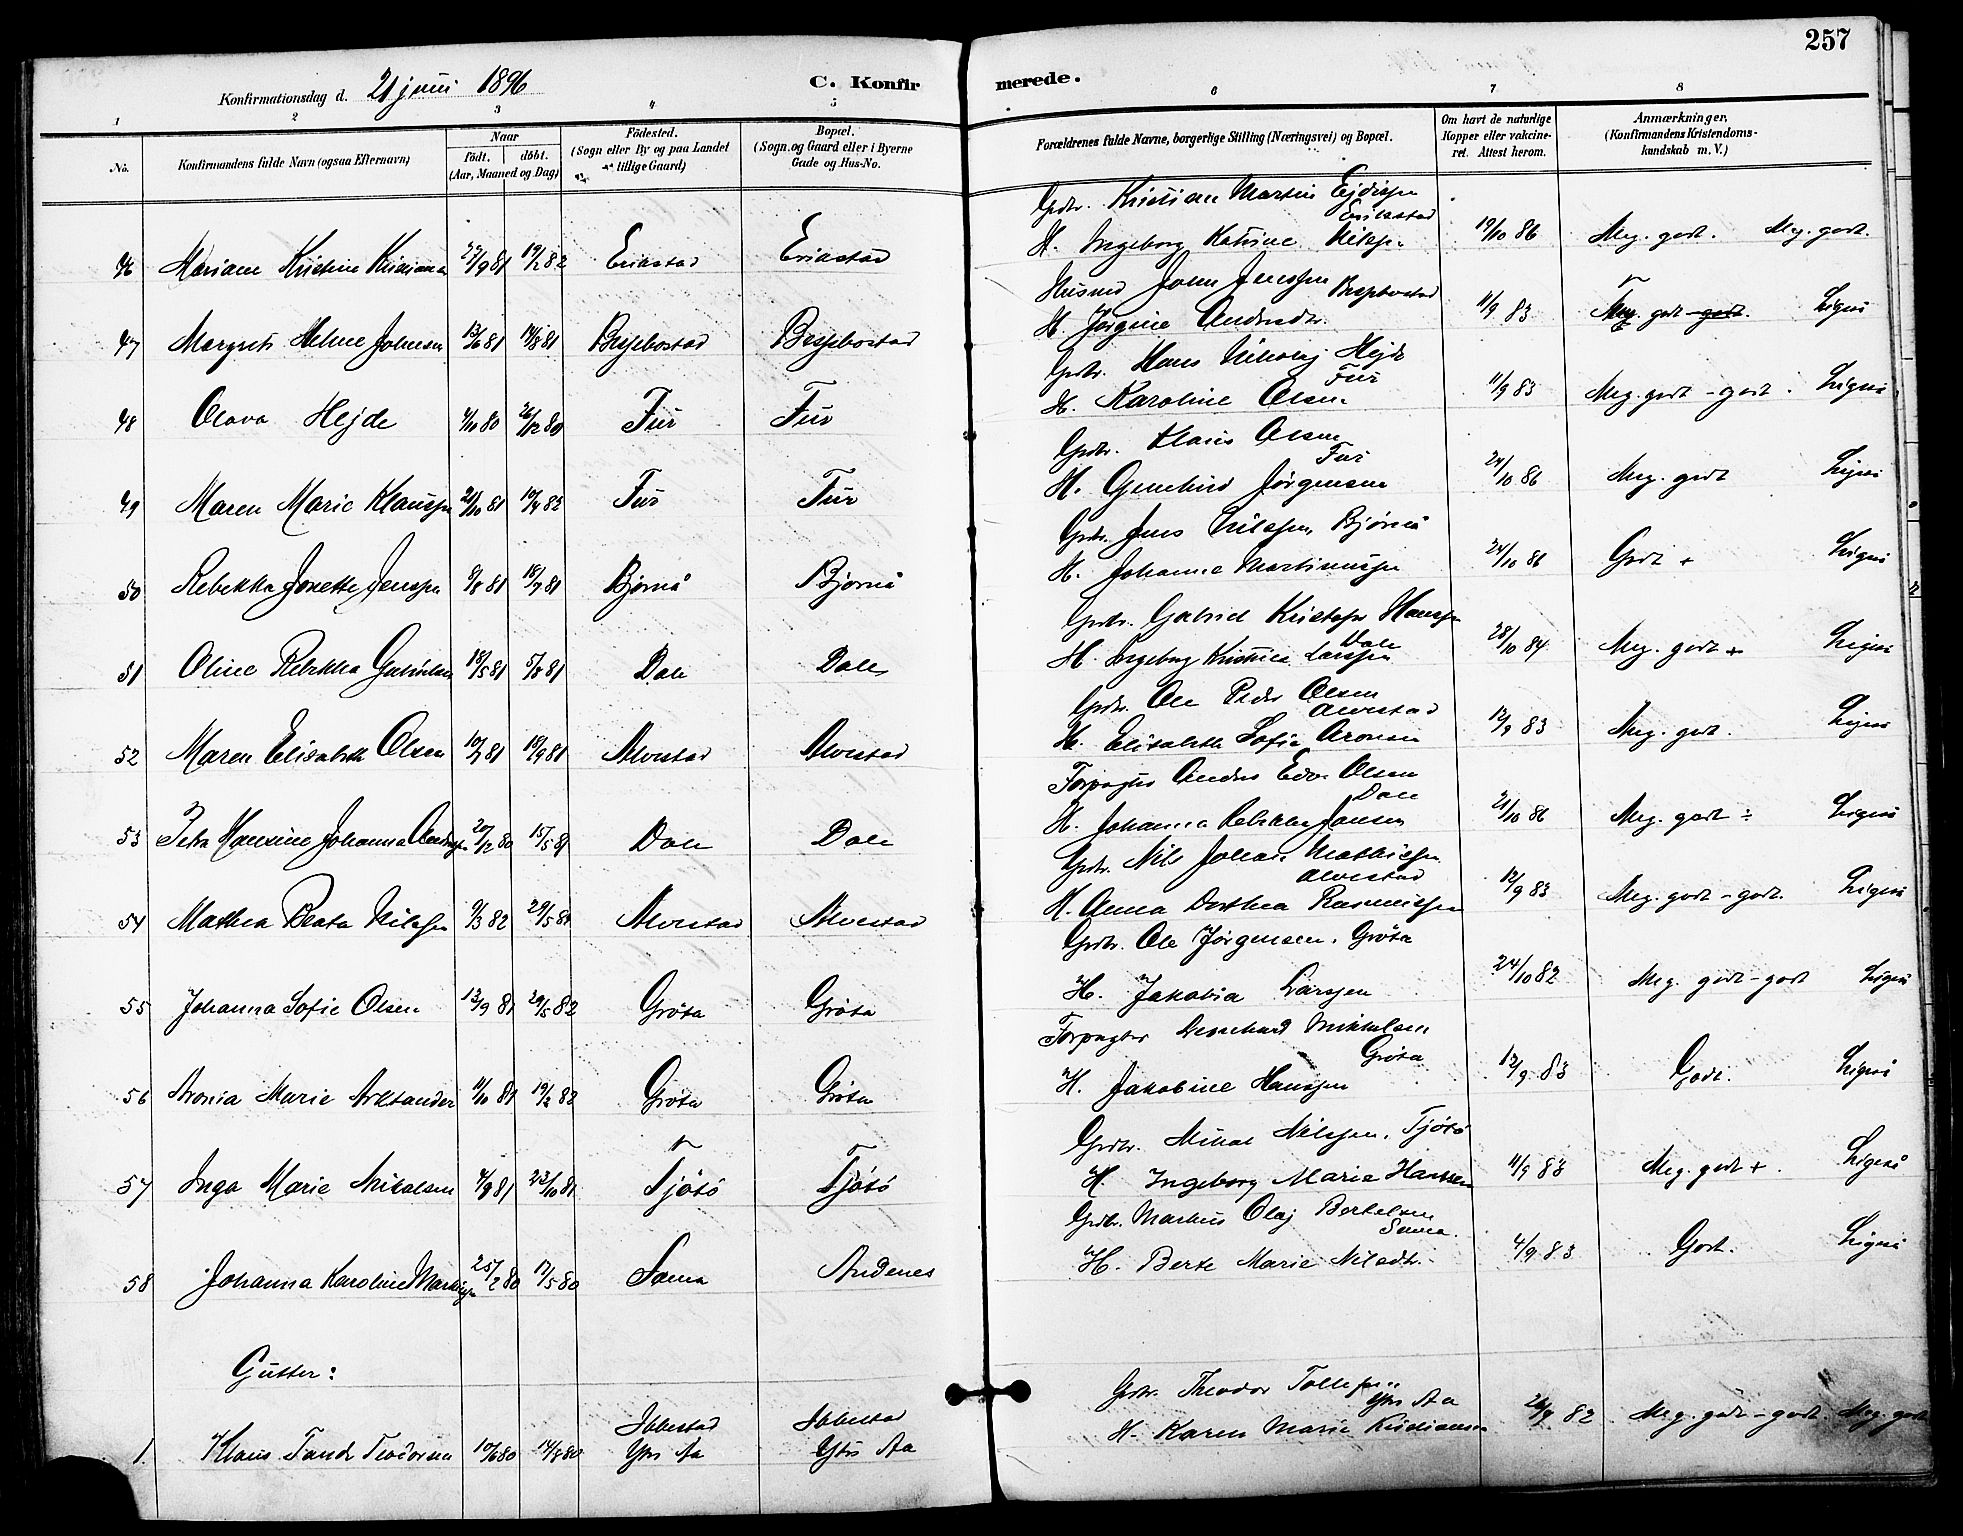 257
Konfirmationsdag d. 21 juni 1896
C. Konfirmerede.
1 2 3 4 5 6 7 8
No.
Konfirmandens fulde Navn (ogsaa Efternavn)
Naar
födt. döbt.
(Aar, Maaned og Dag)
Födested.
(Sogn eller By og paa Landet tillige Gaard)
Bopæl.
(Sogn og Gaard eller i Byerne Gade og Hus-No.
Forældrenes fulde Navne, borgerlige Stilling (Næringsvei) og Bopæl.
Om havt de naturlige Kopper eller vakcineret. Attest herom.
Anmærkninger,
(Konfirmandens Kristendomskundskab m. V.)
46 Mariane Kristine 27/9 81 19/2 82 Erikstad Erikstad
Grdbr. Kristian Martin
Erikstad
H. Ingeborg Katrine Nilssen 19/10 86 Meg. godt. Meg. godt.
47 Margrete Heline Johnsen 13/6 81 14/8 81 Bessebostad Bessebostad
Husmd John Jenssen Bessebostad
H. Jørgine Andersdr. 11/9 83 godt Ligeså
48 Olava Hejde 4/10 80 26/12 80 Fur Fur
Grdbr. Hans Nikolaj Hejde
Fur
H. Karoline Olsen 11/9 83 Meg. godt - godt. Ligeså
49 Maren Marie Klaussen 21/10 81 10/4 82 Fur Fur
Grdbr. Klaus Olsen
Fur
H. Jørgensen 24/10 86 Meg. godt Ligeså
50 Rebekka Jonette Jenssen 18/7 81 Bjørnå Bjørnå
Grdbr. Jens Nilssen, Bjørnå
H. Johanna Martinussen 24/10 86 Godt + Ligeså
51 Oline Rebekka Gabrielsen 18/5 81 Dale Dale
Grdbr. Gabriel Kristofer Hanssen
Dale
H. Ingeborg Kristine Larssen 28/10 84 Meg. godt + Ligeså
52 Maren Elisabeth Olsen 18/9 81 Alvestad Alvestad
Grdbr. Ole Peder Olsen
Alvestad
H. Elisabeth Sofie Aronsen 12/9 83 Meg. godt. Ligeså
53 Petra Hansine Johanna Anderssen 20/12 80 15/5 81 Dale Dale
Forpagter Anders Edv. Olsen
Dale
H. Johanna Rebekka Jansen 21/10 86 Meg. godt ÷ Ligeså
54 Mathea Beata Nilssen 9/3 82 Alvestad Alvestad
Grdbr. Nils Johan Mathissen
Alvestad
H. Anna Dorthea Rasmussen 12/9 83 Meg. godt - godt. Ligeså
55 Johanna Sofie Olsen 13/9 81 29/5 82 Grøta Grøta
Grdbr. Ole Jørgensen, Grøta
H. Jakobia Larssen 24/10 82 Meg. godt - godt Ligeså
56 Aronia Marie Arktander 11/10 81 19/2 82 Grøta Grøta
Forpagter Mikkelsen
Grøta
H. Jakobine Hanssen 12/9 83 Godt. Ligeså
57 Inga Marie Mikalsen 4/9 81 23/10 81 Tjøtø Tjøtø
Grdbr. Mikal Nilssen, Tjøtø
H. Ingeborg Marie Hanssen 11/9 83 Meg. godt +. Ligeså
58 Johanna Karoline 25/2 80 17/5 80 Saua Andenes
Grdbr. Markus Olaj Bertelsen
Saua.
H. Berte Marie Nilsdtr. 4/9 83 Godt. Ligeså
Gutter:
1. Klaus Teodorsen 10/6 80 14/8 80 Ibbestad Ytre Aa Ibbestad Ytre Aa
Grdbr. Theodor Tollefsen
Ytre Aa
H. Karen Marie Kristiansen 26/9 82 Meg. godt - godt. Meg. godt